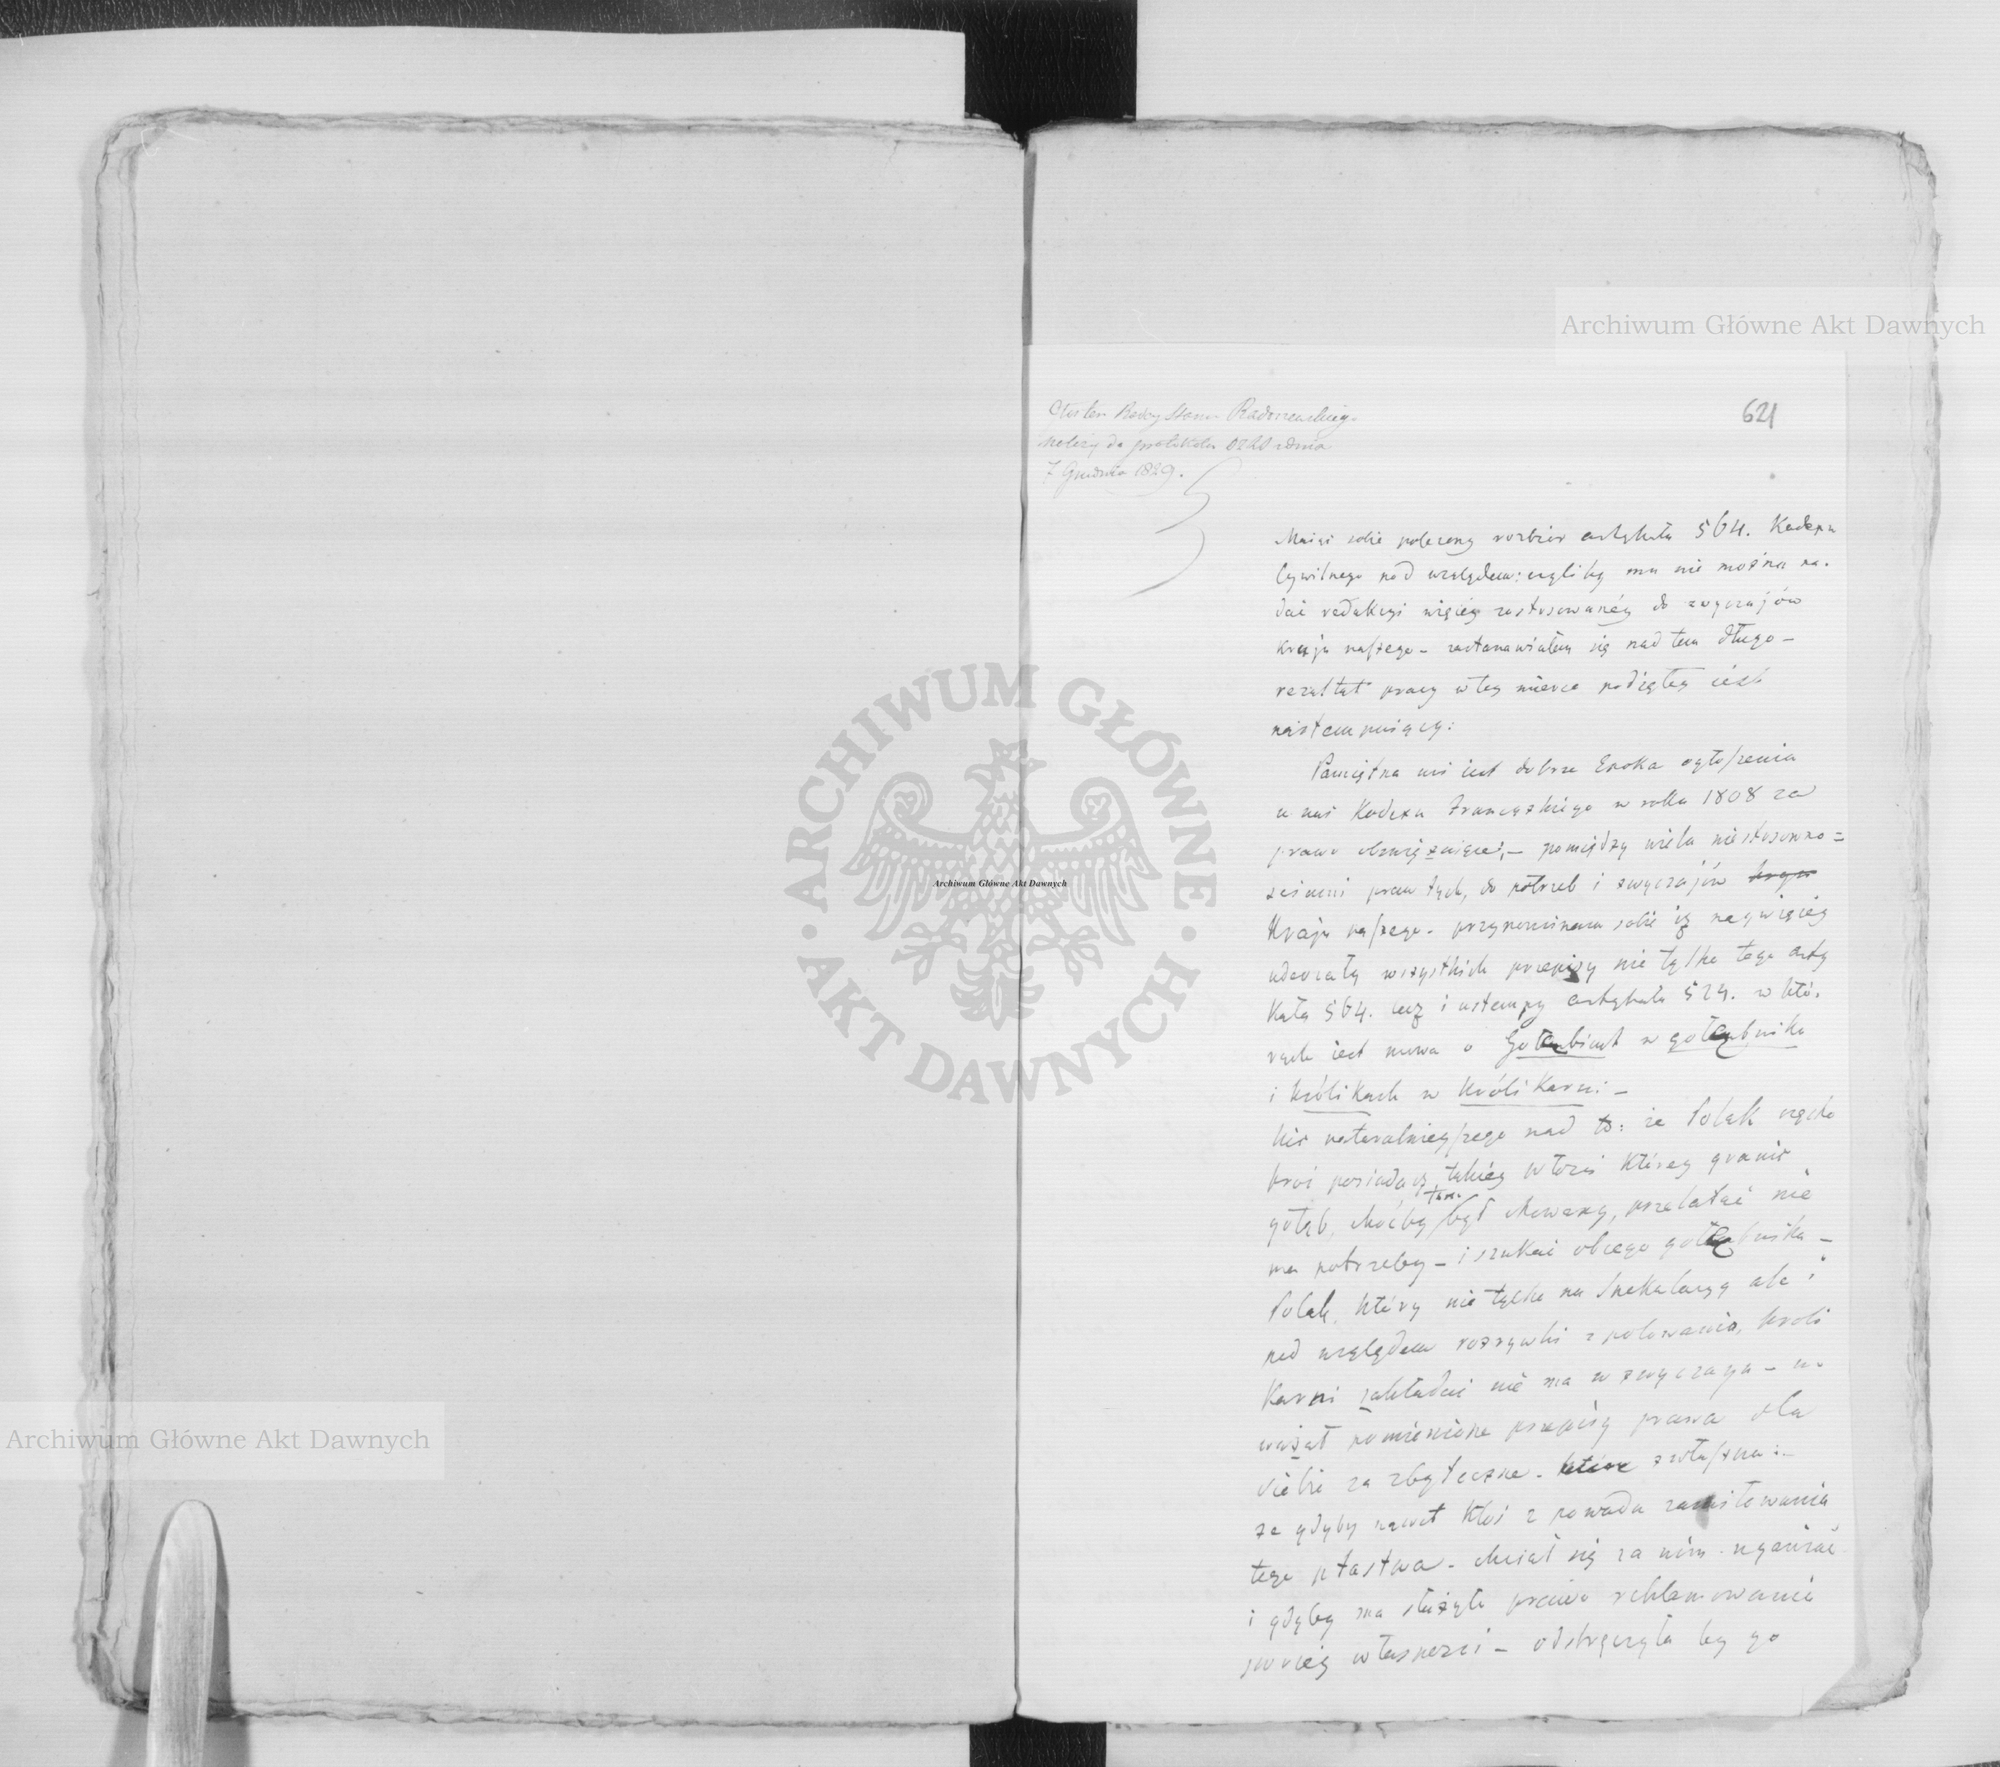 Archiwum Główne Akt Dawnych
621
Radcy Stanu Radoszewskiego
należy do protokółu
7 Grudnia 1829.
Maiąc sobie polecony rozbiór artykułu 564. Kodexu
Cywilnego pod względem: czyliby mu nie można na-
dać redakcyi więcéy zastosowanéy do zwyczajów
kraju naszego – zastanawiałem się nad tem długo –
rezultat pracy w tey mierze podiętey iest
nastempuiący:
Pamiętna mi iest dobrze Epoka ogłoszenia
u nas Kodexu Francuzkiego w roku 1808 za
prawo obowięzuiące; – pomiędzy wielu niestosowno=
ściami praw tych, do potrzeb i zwyczajów kraju
Kraju naszego – przypominam sobie iż naywięcéy
uderzały wszystkich przepisy nie tylko tego arty
kułu 564. lecz i ustempy artykułu 524. w któ-
rych iest mowa o Gołembiach w gołembniku
i królikach w królikarni –
Nic naturalnieyszego nad to: że Polak częsło
kroć posiadacz takiéy włości któréy granic
gołąb, choćby tam był chowany, przelatać nie
ma potrzeby – i szukać obcego gołembnika –
Polak, który nie tylko na spekulacyą ale i
pod względem rozrywki z polowania, króli
karni zakładać nie ma w zwyczaju – u-
ważał pomienione przepisy prawa dla
siebie za zbyteczne – które zwłaszcza: –
że gdyby nawet ktoś z powodu zamiłowania
tego ptastwa – chciał się za nim uganiać
i gdyby mu służyło prawo reklamowania
swoiéy własności – odstręczyła by go
Archiwum Główne Akt Dawnych
Archiwum Główne Akt Dawnych
ARCHIWUM GŁÓWNE · AKT DAWNYCH ·